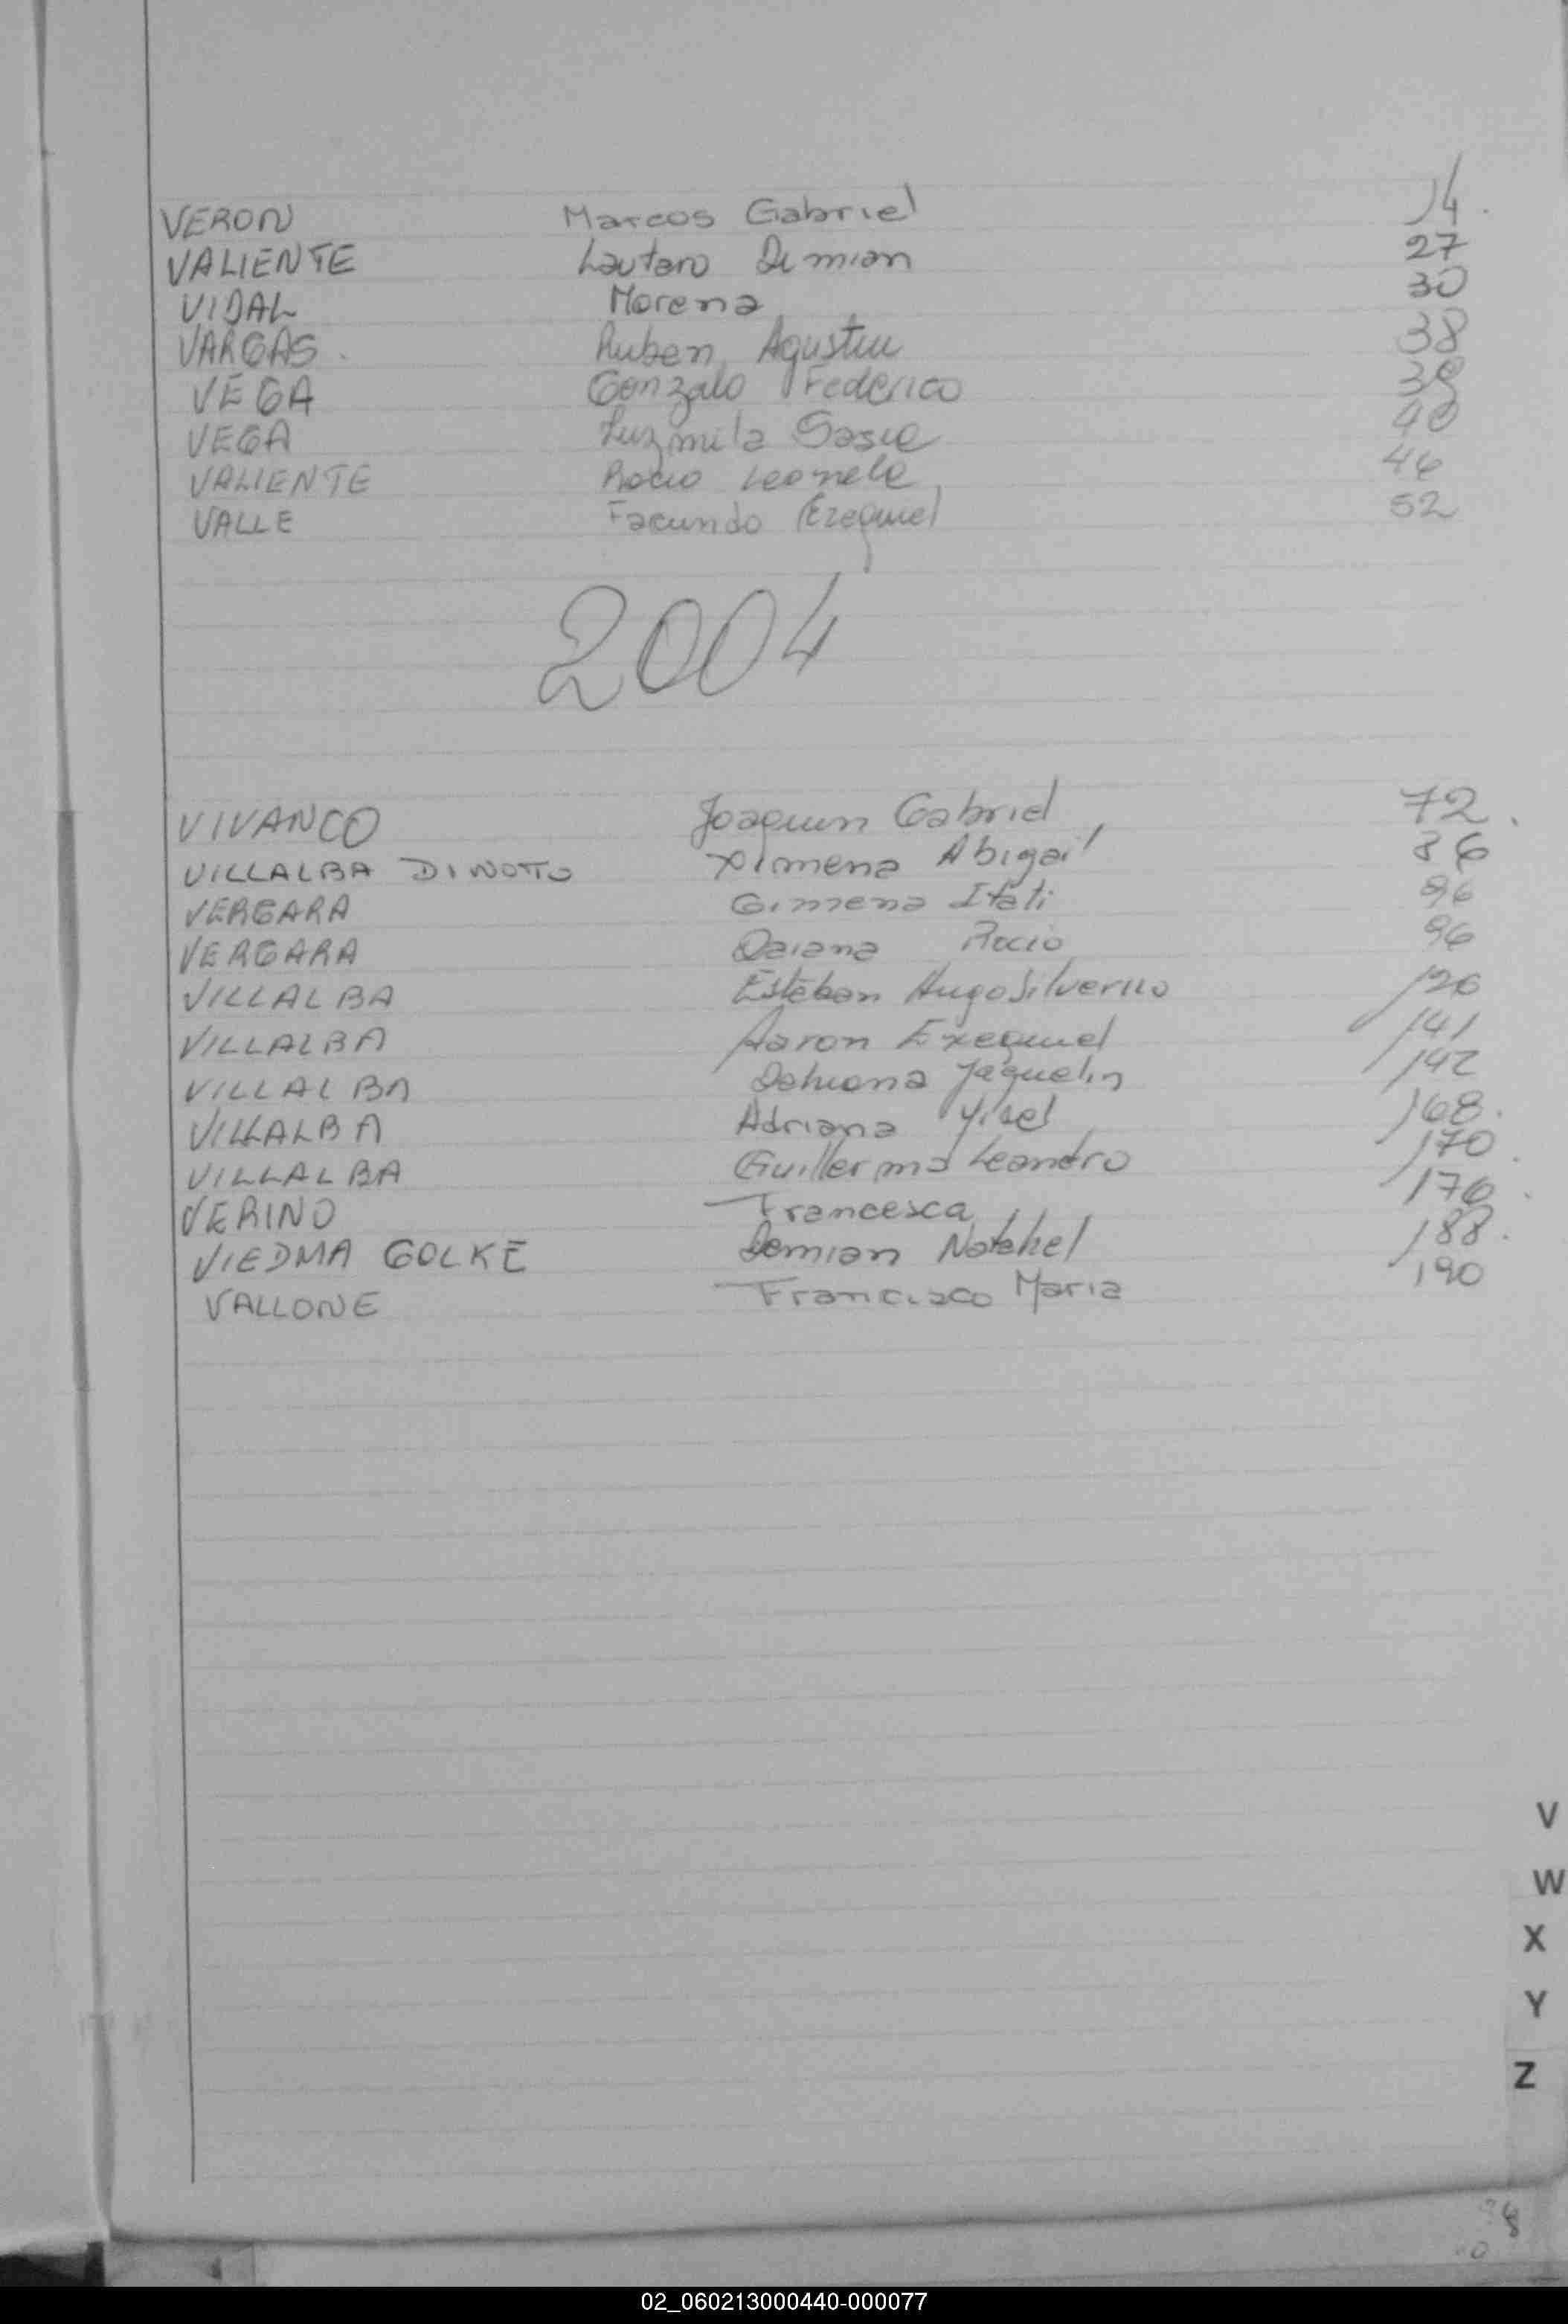 VERON Marcos Gabriel 14.
VALIENTE Lautaro Dimian 27
VIDAL Morena 30
VARGAS. Ruben Agustin 38
VEGA Gonzalo Federico 39
VEGA Luzmila 40
VALIENTE Rocio Leonela 46
VALLE Facundo Ezequiel 52
2004
VIVANCO Joaquin Gabriel 72.
VILLALBA DINOTTO Ximena Abigail 86
VERGARA Gimena Itati 96
VERGARA Daiana Rocio 96
VILLALBA Esteban Hugo Silverio 126
VILLALBA Aaron Exequiel 141
VILLALBA Jaquelin 142
VILLALBA Adriana Yisel 168.
VILLALBA Guillermo Leandro 170.
VERINO Francesca 176.
VIEDMA GOLKE Demian Natahel 188.
VALLONE Francisco Maria 190
V
W
X
Y
Z
02_060213000440-000077